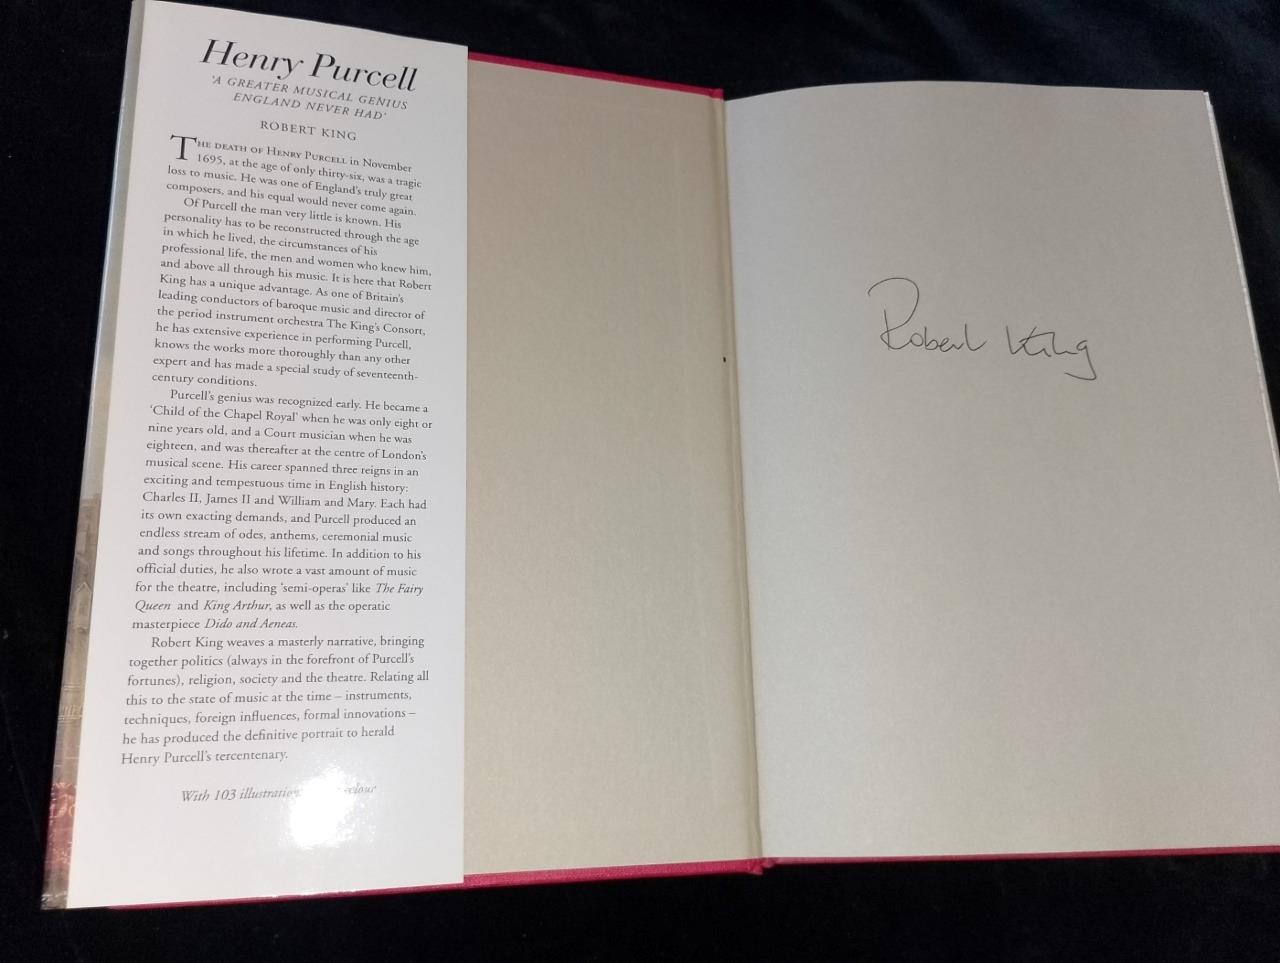 Henry Purcell
'A GREATER MUSICAL GENIUS
ENGLAND NEVER HAD'
ROBERT KING
THE DEATH OF HENRY PURCELL in November
1695, at the age of only thirty-six, was a tragic
loss to music. He was one of England's truly great
composers, and his equal would never come again.
Of Purcell the man very little is known. His
personality has to be reconstructed through the age
in which he lived, the circumstances of his
professional life, the men and women who knew him,
and above all through his music. It is here that Robert
King has a unique advantage. As one of Britain's
leading conductors of baroque music and director of
the period instrument orchestra The King's Consort,
he has extensive experience in performing Purcell,
knows the works more thoroughly than any other
expert and has made a special study of seventeenth-
century conditions.
Purcell's genius was recognized early. He became a
'Child of the Chapel Royal' when he was only eight or
nine years old, and a Court musician when he was
eighteen, and was thereafter at the centre of London's
musical scene. His career spanned three reigns in an
exciting and tempestuous time in English history:
Charles II, James II and William and Mary. Each had
its own exacting demands, and Purcell produced an
endless stream of odes, anthems, ceremonial music
and songs throughout his lifetime. In addition to his
official duties, he also wrote a vast amount of music
for the theatre, including 'semi-operas' like The Fairy
Queen and King Arthur, as well as the operatic
masterpiece Dido and Aeneas.
Robert King weaves a masterly narrative, bringing
together politics (always in the forefront of Purcell's
fortunes), religion, society and the theatre. Relating all
this to the state of music at the time – instruments,
techniques, foreign influences, formal innovations –
he has produced the definitive portrait to herald
Henry Purcell's tercentenary.
With 103 colour
Robert King